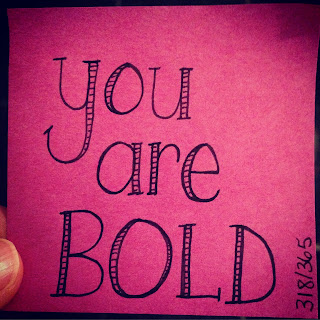 you
are
BOLD
318/365